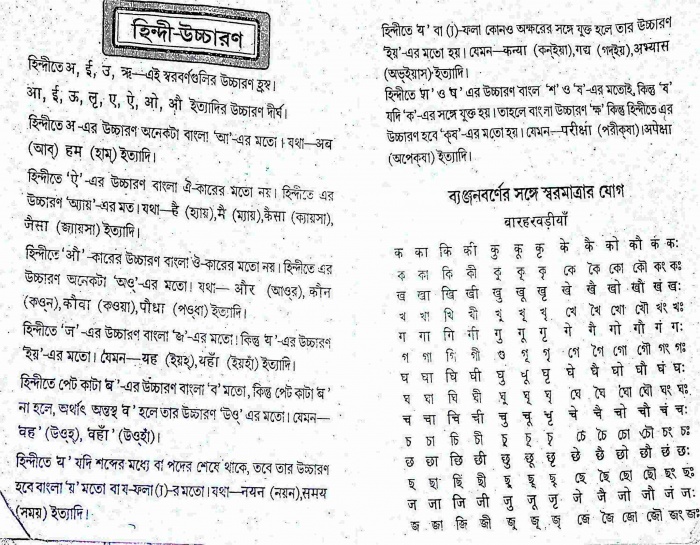 হিন্দী-উচ্চারণ
হিন্দীতে अ, ई, उ, ऋ—এই স্বরবর্ণগুলির উচ্চারণ হ্রস্ব।
आ, ई, ऊ, लृ, ए, ऐ, ओ, औ ইত্যাদির উচ্চারণ দীর্ঘ।
হিন্দীতে अ -এর উচ্চারণ অনেকটা বাংলা 'আ'-এর মতো। যথা—अब
(আব্) हम (হাম্) ইত্যাদি।
হিন্দীতে 'ऐ'-এর উচ্চারণ বাংলা ঐ-কারের মতো নয়। হিন্দীতে এর
উচ্চারণ 'অ্যায়'-এর মত। যথা—है (হ্যায়), मै (ম্যায়), कैसा (ক্যায়সা),
जैसा (জ্যায়সা) ইত্যাদি।
হিন্দীতে 'औ'-কারের উচ্চারণ বাংলা ঔ-কারের মতো নয়। হিন্দীতে এর
উচ্চারণ অনেকটা 'অও্'-এর মতো। যথা— और (আওর্), कौन
(কওন্), कौवा (কওয়া), पौधा (পওধা) ইত্যাদি।
হিন্দীতে 'ज'-এর উচ্চারণ বাংলা 'জ'-এর মতো। কিন্তু य'-এর উচ্চারণ
'ইয়'-এর মতো। যেমন—यह (ইয়হ্), यहाँ (ইয়হাঁ) ইত্যাদি।
হিন্দীতে পেট কাটা ब'-এর উচ্চারণ বাংলা 'ব' মতো, কিন্তু পেট কাটা ब'
না হলে, অর্থাৎ অন্তস্থ व' হলে তার উচ্চারণ 'উও্' এর মতো। যেমন—
वह' (উওহ্), वहाँ' (উওহাঁ)।
হিন্দীতে य' যদি শব্দের মধ্যে বা পদের শেষে থাকে, তবে তার উচ্চারণ
হবে বাংলা 'য়' মতো বা য-ফলা (্য)-র মতো। যথা—नयन (নয়ন), समय
(সময়) ইত্যাদি।
হিন্দীতে य' বা (্য)-ফলা কোনও অক্ষরের সঙ্গে যুক্ত হলে তার উচ্চারণ
'ইয়'-এর মতো হয়। যেমন—कन्या (কন্ইয়া), गद्य (গদ্ইয়), अभ्यास
(অভ্ইয়াস) ইত্যাদি।
হিন্দীতে श' ও ष' এর উচ্চারণ বাংলা 'শ' ও 'ষ'-এর মতোই, কিন্তু 'ष'
যদি 'ক'-এর সঙ্গে যুক্ত হয়। তাহলে বাংলা উচ্চারণ 'ক্ষ' কিন্তু হিন্দীতে এর
উচ্চারণ হবে 'কৃষ'-এর মতো হয়। যেমন—परीक्षा (পরীক্ষা) अपेक्षा
(অপেক্ষা) ইত্যাদি।
ব্যঞ্জনবর্ণের সঙ্গে স্বরমাত্রার যোগ
বারহরবড়ীয়াঁ
क का कि की कु कू कृ के कै को कौ कं कः
ক কা কি কী কু কূ কৃ কে কৈ কো কৌ কং কঃ
ख खा खि खी खु खू खृ खे खै खो खौ खं खः
খ খা খি খী খু খূ খৃ খে খৈ খো খৌ খং খঃ
ग गा गि गी गु गू गृ गे गै गो गौ गं गः
গ গা গি গী গু গূ গৃ গে গৈ গো গৌ গং গঃ
घ घा घि घी घु घू घृ घे घै घो घौ घं घः
ঘ ঘা ঘি ঘী ঘু ঘূ ঘৃ ঘে ঘৈ ঘো ঘৌ ঘং ঘঃ
च चा चि ची चु चू चृ चे चै चो चौ चं चः
চ চা চি চী চু চূ চৃ চে চৈ চো চৌ চং চঃ
छ छा छि छी छु छू छृ छे छै छो छौ छं छः
ছ ছা ছি ছী ছু ছূ ছৃ ছে ছৈ ছো ছৌ ছং ছঃ
ज जा जि जी जु जू जृ जे जै जो जौ जं जः
জ জা জি জী জু জূ জৃ জে জৈ জো জৌ জং জঃ